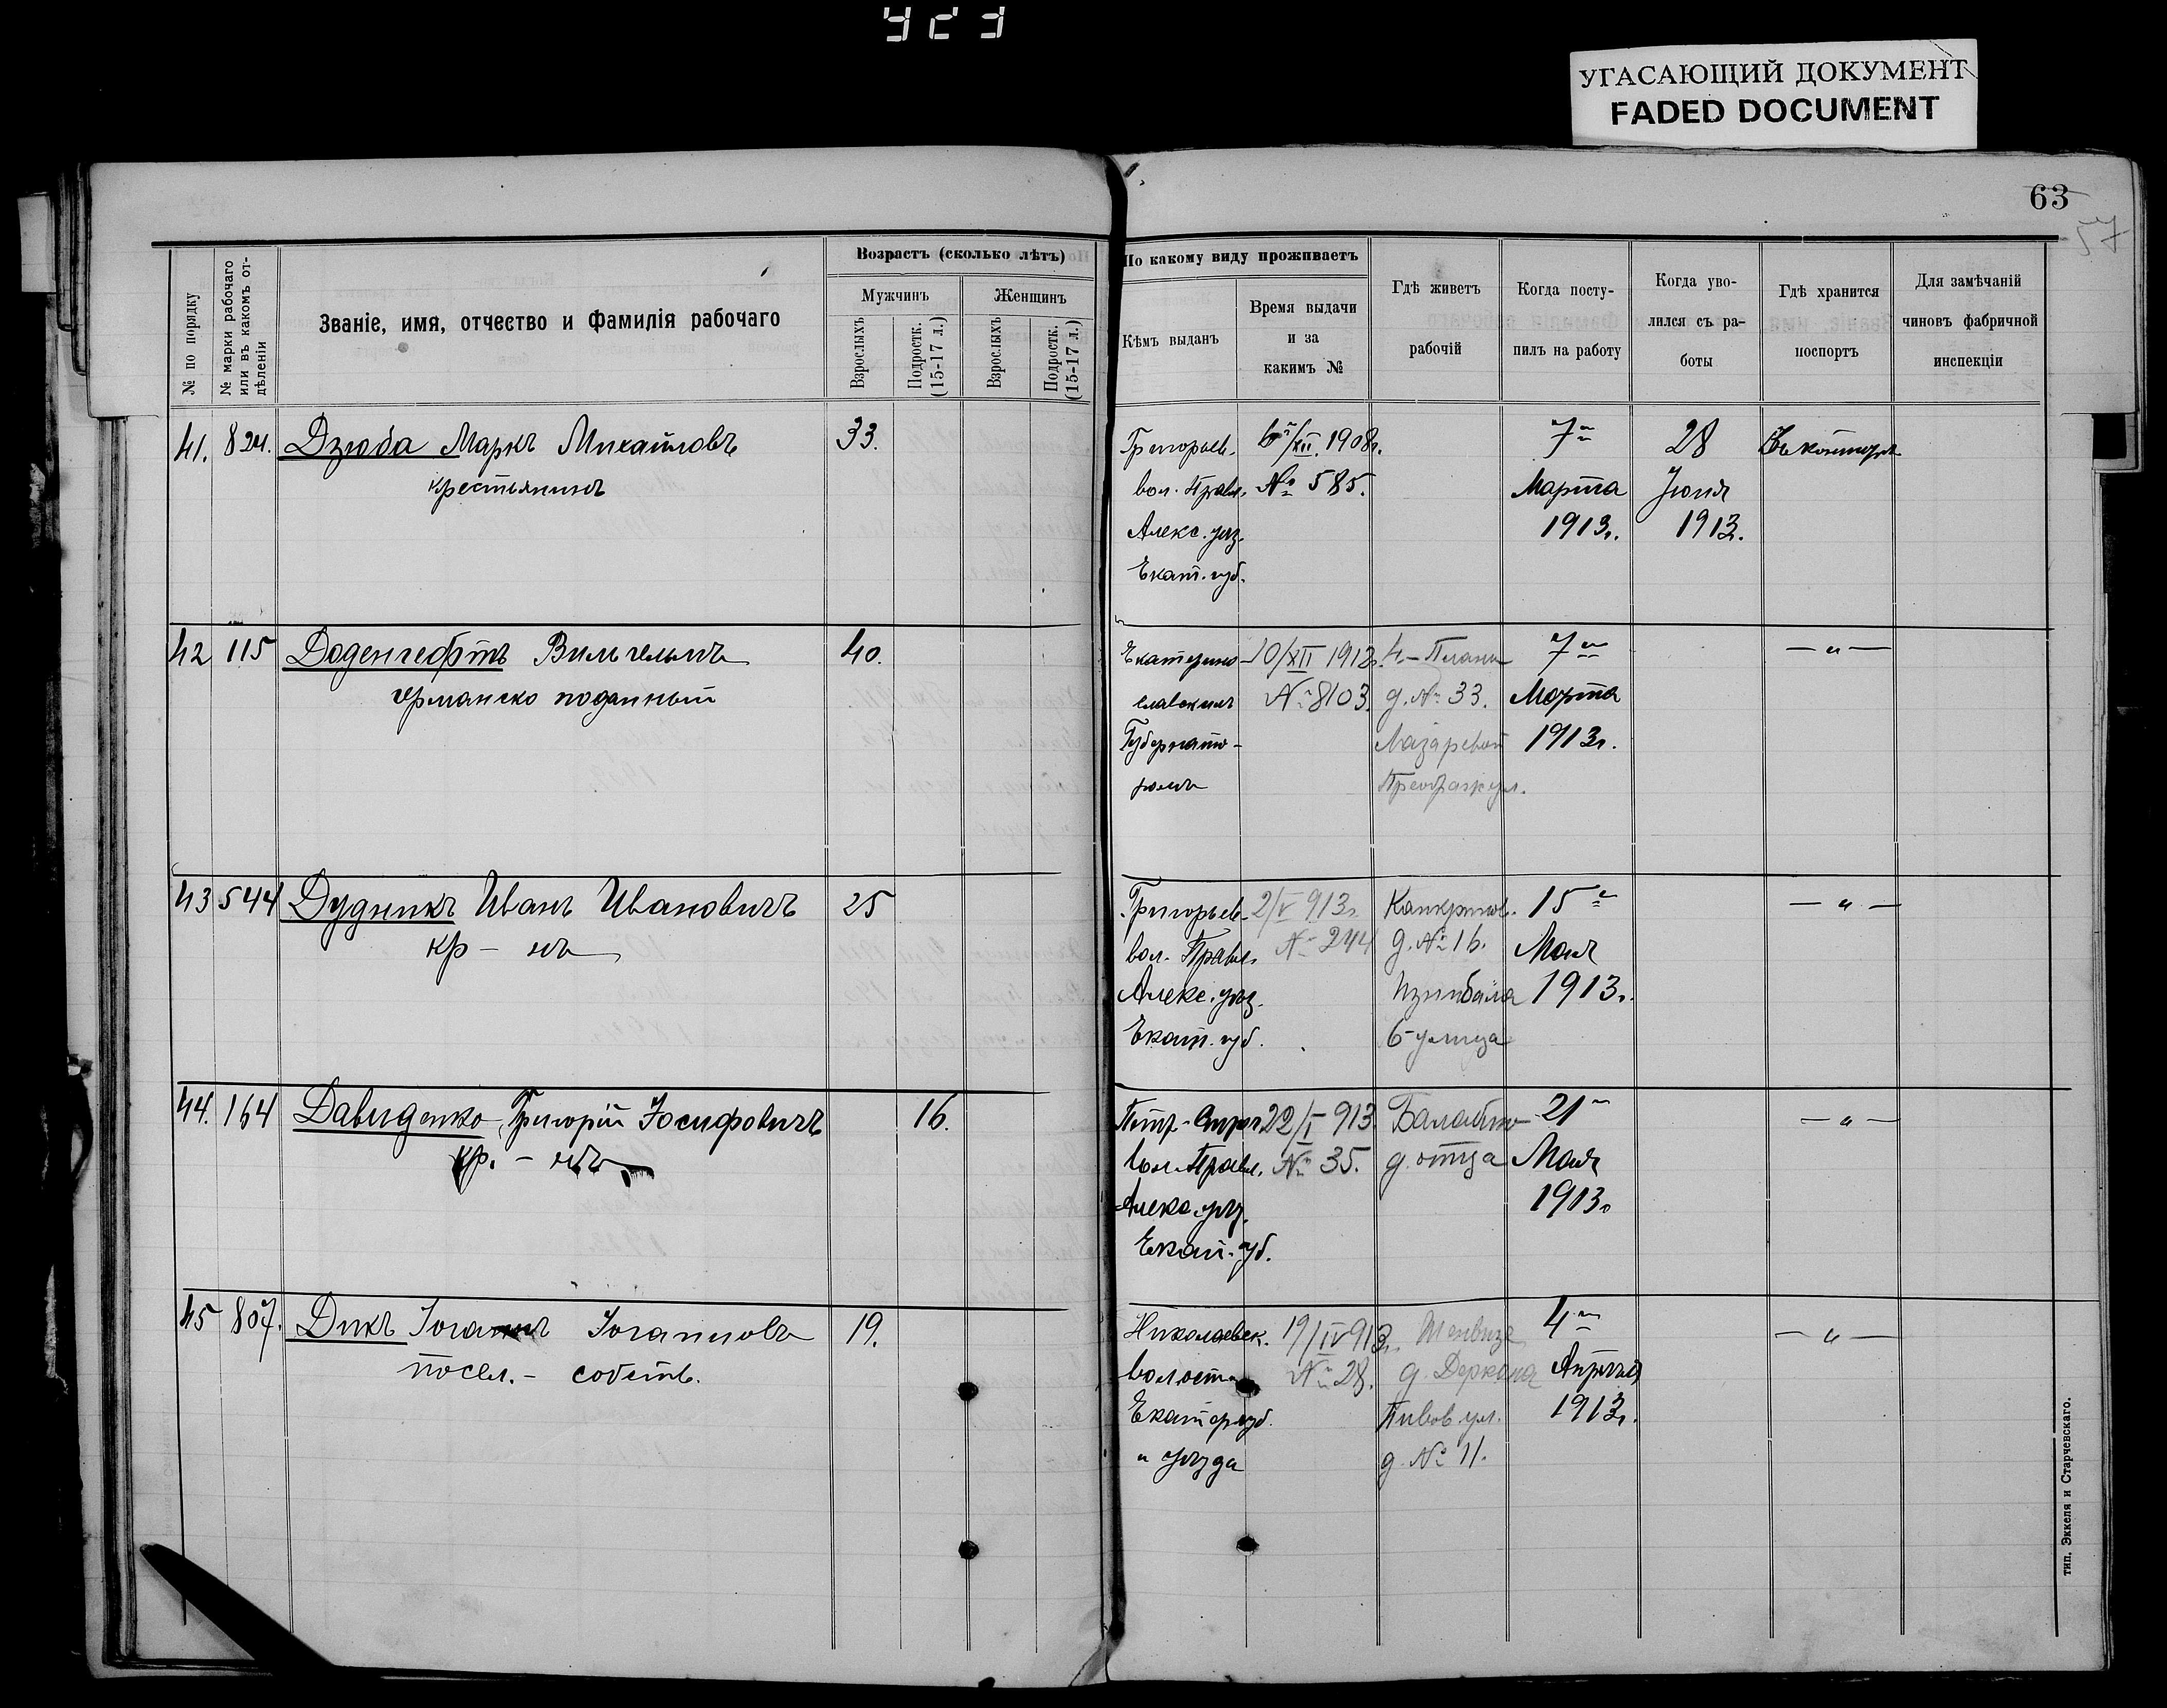 423
УГАСАЮЩИЙ ДОКУМЕНТ
FADED DOCUMENT
63
57
№ по порядку
№ марки рабочаго или въ какомъ отдѣленіи
Званіе, имя, отчество и фамилія рабочаго
Возрастъ (сколько лѣтъ)
Мужчинъ
Женщинъ
Взрослыхъ
Подростк. (15-17 л.)
Взрослыхъ
Подростк. (15-17 л.)
По какому виду проживаетъ
Кѣмъ выданъ
Время выдачи
и за
какимъ №
Гдѣ живетъ
рабочій
Когда посту-
пилъ на работу
Когда уво-
лился съ ра-
боты
Гдѣ хранится
поспортъ
Для замѣчаній
чиновъ фабричной
инспекціи
41. 824. Дзюба Маркъ Михайловъ 33.
крестьянинъ
Григорьев.
вол. Правл.
Алекс. уѣз.
Екат. губ.
6/XII 1908г.
№ 585.
7
Марта
1913г.
28
Іюня
1913.
Въ конторѣ
42 115 Доденгефтъ Вильгельмъ 40.
германско поданный
Екатерино-
славскимъ
Губернато-
ромъ
10/XII 1912г.
№ 8103.
4-Планъ
д. № 33.
Лазаревой
Преображ ул.
7
Марта
1913г.
— „ —
43 544 Дудникъ Иванъ Ивановичъ 25
кр — нъ
Григорьев-
вол. Правл.
Алекс. уѣз.
Екат. губ.
2/V 913г.
№ 244
д. № 16.
6-улица
15
Мая
1913г.
— „ —
44. 164 Давиденко Григорій Іосифовичъ 16.
кр. — нъ
вол. Правл.
Алекс. уѣз.
Екат. губ.
22/I 913
№ 35.
Балабино
д. отца
21
Мая
1913г.
— „ —
45 807. Дикъ Іоганнъ Іоганновъ 19.
посел. — собств.
Николаевск.
волости
Екатер губ.
и уѣзда
19/IV 913г.
№ 28.
Шенвизе
д. Деркача
Пивов. ул.
д. № 11.
4
Апрѣля
1913г.
— „ —
тип. Эккеля и Старчевскаго.